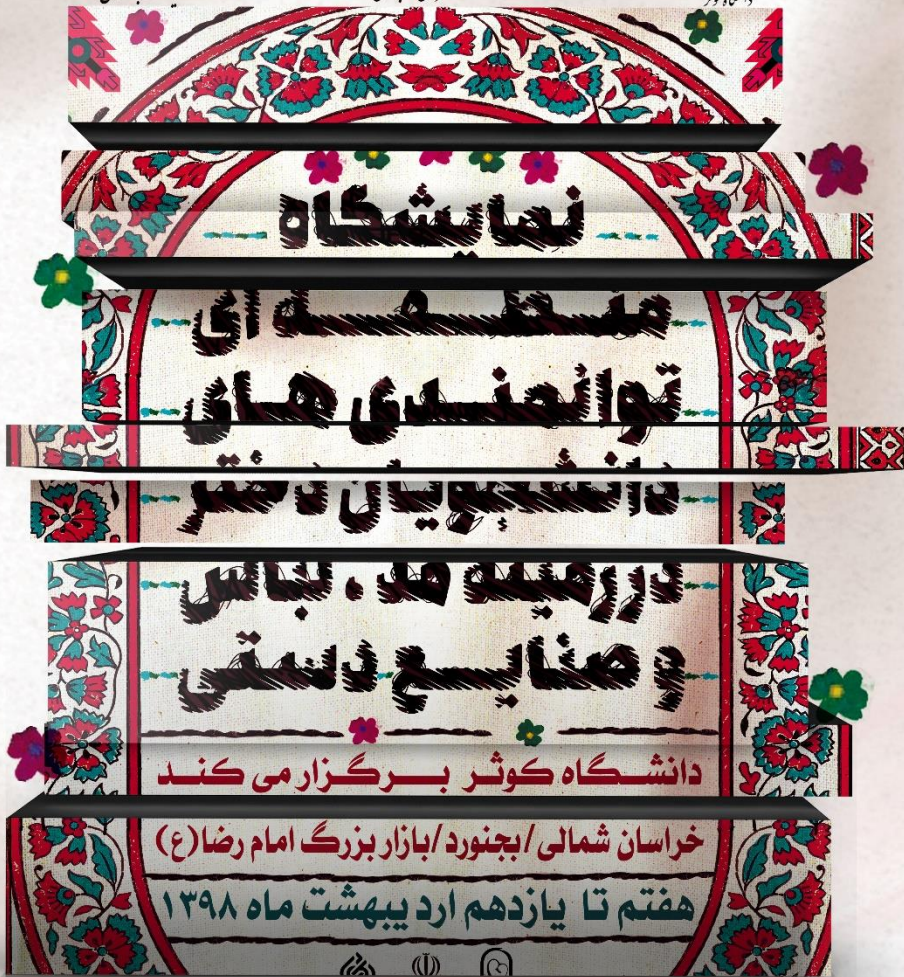 نمایشگاه
منطقه ای
توانمندی های
دانشجویان دختر
درزمینه مد ، لباس
و صنایع دستی
دانشگاه کوثر برگزار می کند
خراسان شمالی/بجنورد/بازار بزرگ امام رضا(ع)
هفتم تا یازدهم اردیبهشت ماه ۱۳۹۸